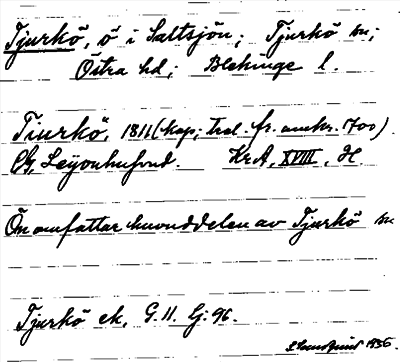 Tjurkö, ö i Saltsjön; Tjurkö sn;
Östra hd; Blekinge l.
Tiurkö, 1811 (kop; trol. fr. omkr. 1700)
Leijonhufvud. KrA, XVIII, H.
Ön omfattar huvuddelen av Tjurkö sn
Tjurkö ek, G. 11. Lj: 96.
1936.